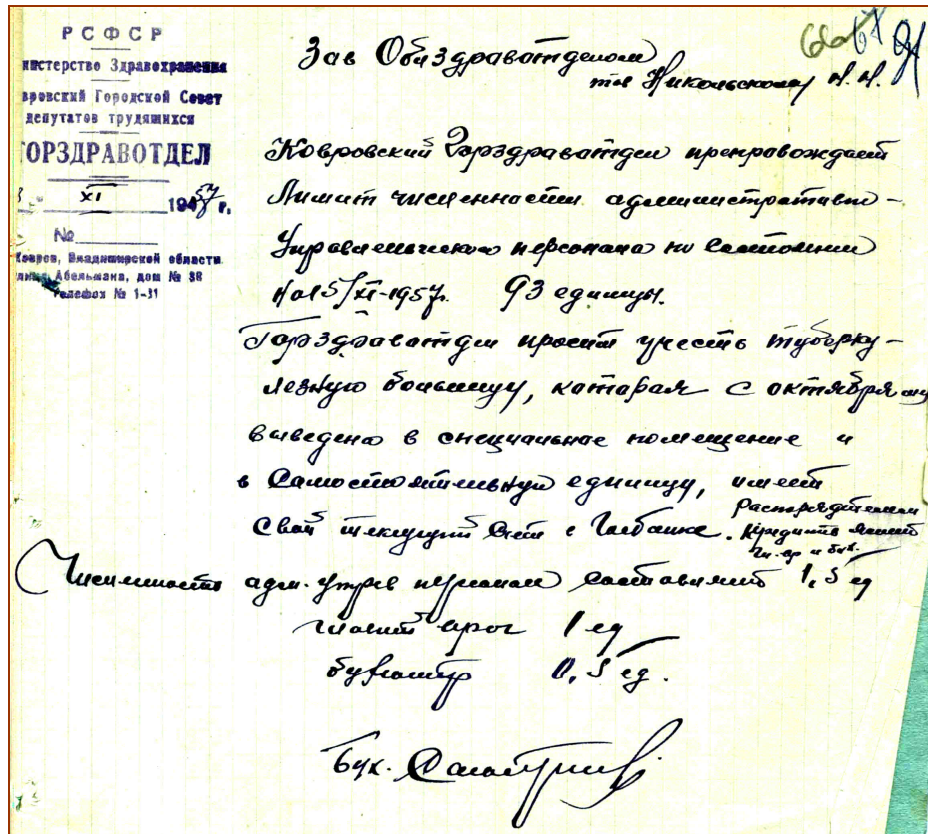 РСФСР
инистерство Здравохранения
вровский Городской Совет
депутатов трудящихся
ГОРЗДРАВОТДЕЛ
XI 1957 г.
№
Ковров, Владимирской области
Абельмана, дом № 38
Телефон № 1-31
Зав Облздравотделом
тов Никольскому
Ковровский Горздравотдел препровождает
Лимит численности административно-
Управленческого персонала по состоянии
на 15/XI-1957. 93 единицы.
Горздравотдел просит учесть туберку-
лезную больницу, которая с октября
выведена в специальное помещение и
в Самостоятельную единицу, имеет
Свой текущий счет в Госбанке. Распорядителем
кредитов является
Гл. вр и бух.
Численность адм. управ персонал составит 1,5 ед
главный врач 1 ед
бухгалтер 0,5 ед.
Бух.